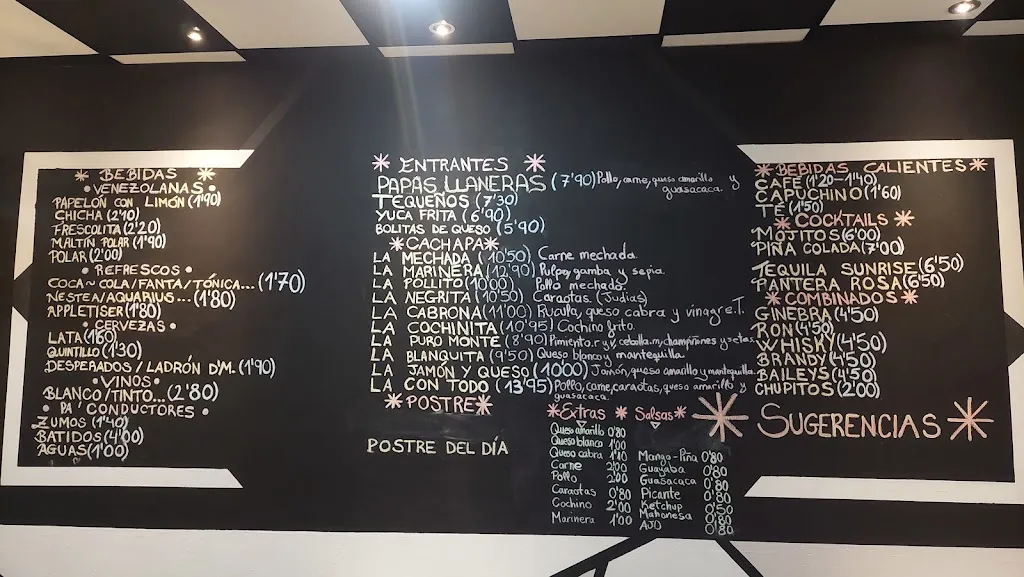 * BEBIDAS *
• VENEZOLANAS •
PAPELÓN CON LIMÓN (1'90)
CHICHA (2'10)
FRESCOLITA (2'20)
MALTIN POLAR (1'90)
POLAR (2'00)
• REFRESCOS •
COCA~COLA/FANTA/TÓNICA... (1'70)
NESTEA/AQUARIUS... (1'80)
APPLETISER (1'80)
• CERVEZAS •
LATA (1'60)
QUINTILLO (1'30)
DESPERADOS / LADRÓN D'M. (1'90)
• VINOS •
BLANCO/TINTO... (2'80)
• PA' CONDUCTORES •
ZUMOS (1'40)
BATIDOS (4'00)
AGUAS (1'00)
* ENTRANTES *
PAPAS LLANERAS (7'90) Pollo, carne, queso amarillo y
guasacaca.
TEQUEÑOS (7'30)
YUCA FRITA (6'90)
BOLITAS DE QUESO (5'90)
* CACHAPA *
LA MECHADA (10'50) Carne mechada.
LA MARINERA (12'90) Pulpo, gamba y sepia.
LA POLLITO (10'00) Pollo mechado.
LA NEGRITA (10'50) Caraotas (Judías)
LA CABRONA (11'00) Rucula, queso cabra y vinagre.T.
LA COCHINITA (10'95) Cochino frito.
LA PURO MONTE (8'90) Pimiento.r y v, cebolla.m, champiñones y setas.
LA BLANQUITA (9'50) Queso blanco y mantequilla.
LA JAMÓN Y QUESO (10'00) Jamón, queso amarillo y mantequilla.
LA CON TODO (13'95) Pollo, carne, caraotas, queso amarillo y
guasacaca.
* POSTRE *
POSTRE DEL DÍA
* Extras * Salsas *
Queso amarillo 0'80
Queso blanco 1'00
Queso cabra 1'10
Carne 2'00
Pollo 2'00
Caraotas 0'80
Cochino 2'00
Marinera 1'00
Mango-Piña 0'80
Guayaba 0'80
Guasacaca 0'80
Picante 0'80
Ketchup 0'50
Mahonesa 0'80
AJO 0'80
* BEBIDAS CALIENTES *
CAFÉ (1'20-1'40)
CAPUCHINO (1'60)
TÉ (1'50)
* COCKTAILS *
MOJITOS (6'00)
PIÑA COLADA (7'00)
TEQUILA SUNRISE (6'50)
PANTERA ROSA (6'50)
* COMBINADOS *
GINEBRA (4'50)
RON (4'50)
WHISKY (4'50)
BRANDY (4'50)
BAILEYS (4'50)
CHUPITOS (2'00)
* SUGERENCIAS *